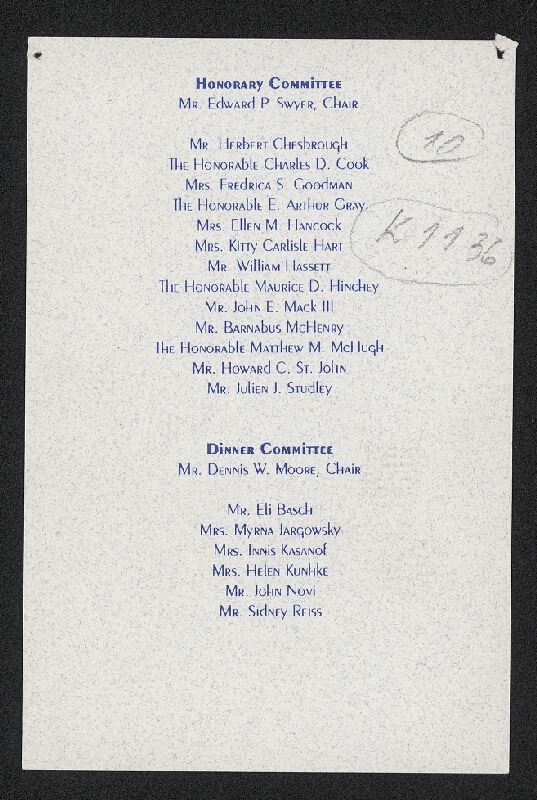 Honorary Committee
Mr. Edward P. Swyer, Chair
Mr. Herbert Chesbrough
The Honorable Charles D. Cook
Mrs. Fredrica S. Goodman
The Honorable E. Arthur Gray
Mrs. Ellen M. Hancock
Mrs. Kitty Carlisle Hart
Mr. William Hassett
The Honorable Maurice D. Hinchey
Mr. John E. Mack III
Mr. Barnabus McHenry
The Honorable Matthew M. McHugh
Mr. Howard C. St. John
Mr. Julien J. Studley
10
K 11 36
Dinner Committee
Mr. Dennis W. Moore, Chair
Mr. Eli Basch
Mrs. Myrna Jargowsky
Mrs. Innis Kasanof
Mrs. Helen Kunhke
Mr. John Novi
Mr. Sidney Reiss